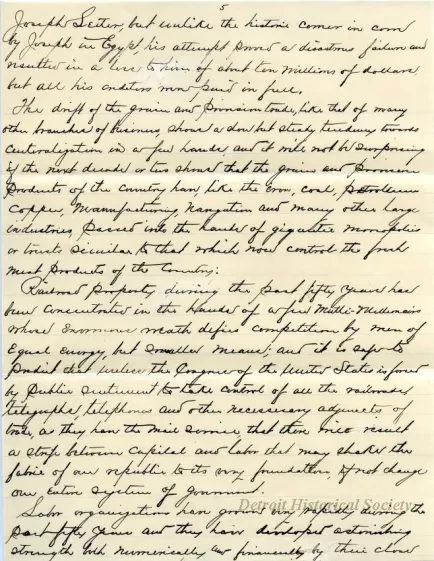 5
Joseph Leiter, but unlike the historic corner in corn
by Joseph in Egypt, his attempt proved a disastrous failure and
resulted in a loss to him of about ten millions of dollars,
but all his creditors were paid in full.
The drift of the grain and provision trade, like that of many
other branches of business, shows a slow but steady tendency towards
centralization in a few hands and it will not be surprising
if the next decade or two should that the grain and provision
products of the country have, like the iron, coal, petroleum
copper, manufacturing, navigation and many other large
industries, passed into the hands of gigantic monopolies
or trusts similar to that which now control the fresh
meat products of the country.
Railroad property during the past fifty years has
been concentrated in the hands of a few multi-millionaires
whose enormous wealth defies competition by men of
equal energy, but smaller means; and it is safe to
predict that unless the Congress of the United States is forced
by public sentiment, to take control of all the railroads
telegraphs, telephones and other necessary adjuncts of
trade, as they have the mail service, that there will result
a strife between capital and labor that may shake the
fabric of our republic to its very foundations, if not change
our entire system of government.
Labor organizations have grown very rapidly during the
past fifty years and they have developed astonishing
strength both numerically and financially by their close
Detroit Historical Society